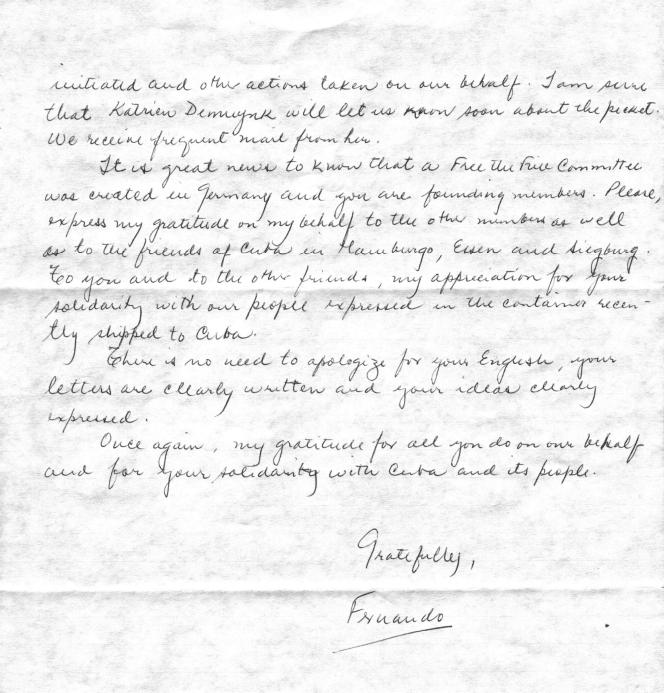 initiated and other actions taken on our behalf. I am sure
that Katrien Demuynk will let us know soon about the picket.
We receive frequent mail from her.
It is great news to know that a Free the Five Committee
was created in Germany and you are founding members. Please,
express my gratitude on my behalf to the other members as well
as to the friends of Cuba in Hamburgo, Essen and Siegburg.
To you and to the other friends, my appreciation for your
solidarity with our people expressed in the container recen-
tly shipped to Cuba.
There is no need to apologize for your English, your
letters are clearly written and your ideas clearly
expressed.
Once again, my gratitude for all you do on our behalf
and for your solidarity with Cuba and its people.
Gratefully,
Fernando